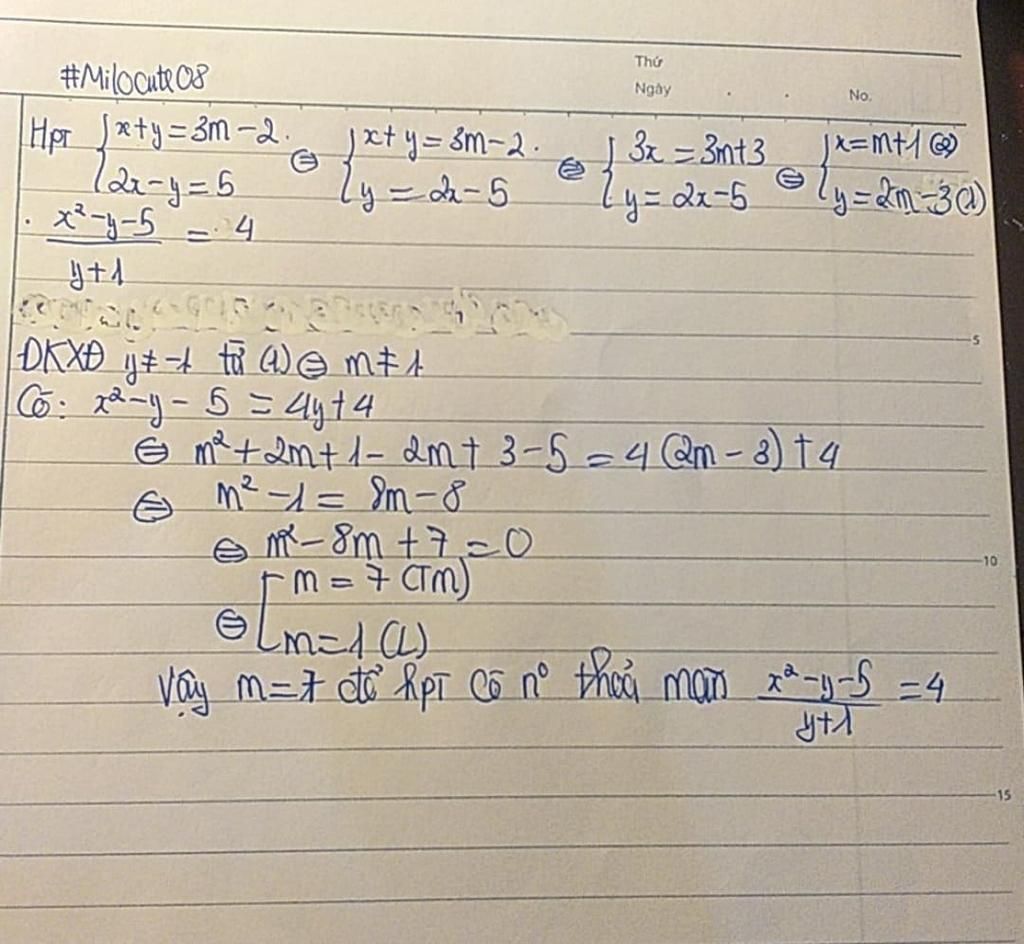 #Milocute08
Thứ
Ngày . . No.
Hpt { x+y=3m-2. 2x-y=5 ⇔ { x+y=3m-2. y=2x-5 ⇔ { 3x=3m+3 y=2x-5 ⇔ { x=m+1 (2) y=2m-3 (1)
. x²-y-5 / y+1 = 4
5
ĐKXĐ y≠-1 từ (1) ⇔ m≠1
Có: x²-y-5=4y+4
⇔ m²+2m+1-2m+3-5=4(2m-3)+4
⇔ m²-1=8m-8
⇔ m²-8m+7=0
10
⇔ [ m=7 (TM) m=1 (L)
Vậy m=7 để hpt có n⁰ thoả mãn x²-y-5 / y+1 =4
15